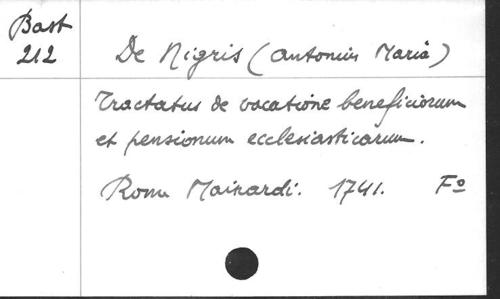 Bast
212
De Nigris (Antonius Maria)
Tractatus de vacatione beneficiorum
et pensionum ecclesiasticarum.
Romæ Mainardi. 1741. Fº